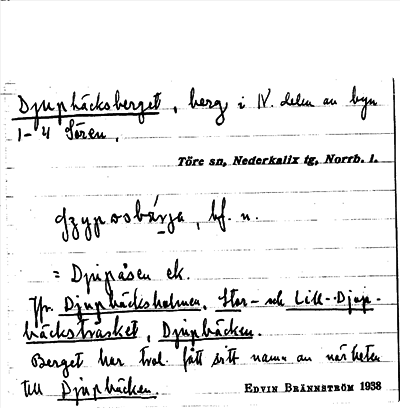 Djupbäcksberget, berg i N. delen av byn
1-4 Sören.
Töre sn, Nederkalix tg, Norrb. l.
bf. n.
= Djupåsen ek.
Jfr. Djupbäcksholmen, Stor- och Lill-Djup-
bäcksträsket, Djupbäcken.
Berget har trol. fått sitt namn av närheten
till Djupbäcken.
EDVIN BRÄNNSTRÖM 1938